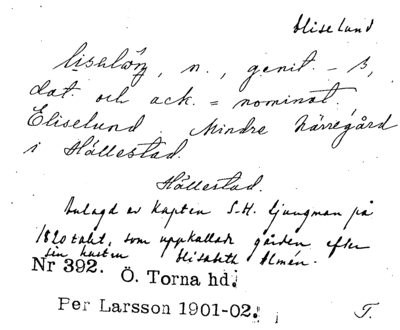 Eliselund
n., genit. – s,
dat. och ack. = nominat.
Eliselund. Mindre herregård
i Hällestad.
Hällestad.
Anlagd av Kapten S.H. Ljungman på
1820 talet, som uppkallade gården efter
sin hustru Elisabeth Almén.
Nr 392. Ö. Torna hd.
Per Larsson 1901-02.
F.